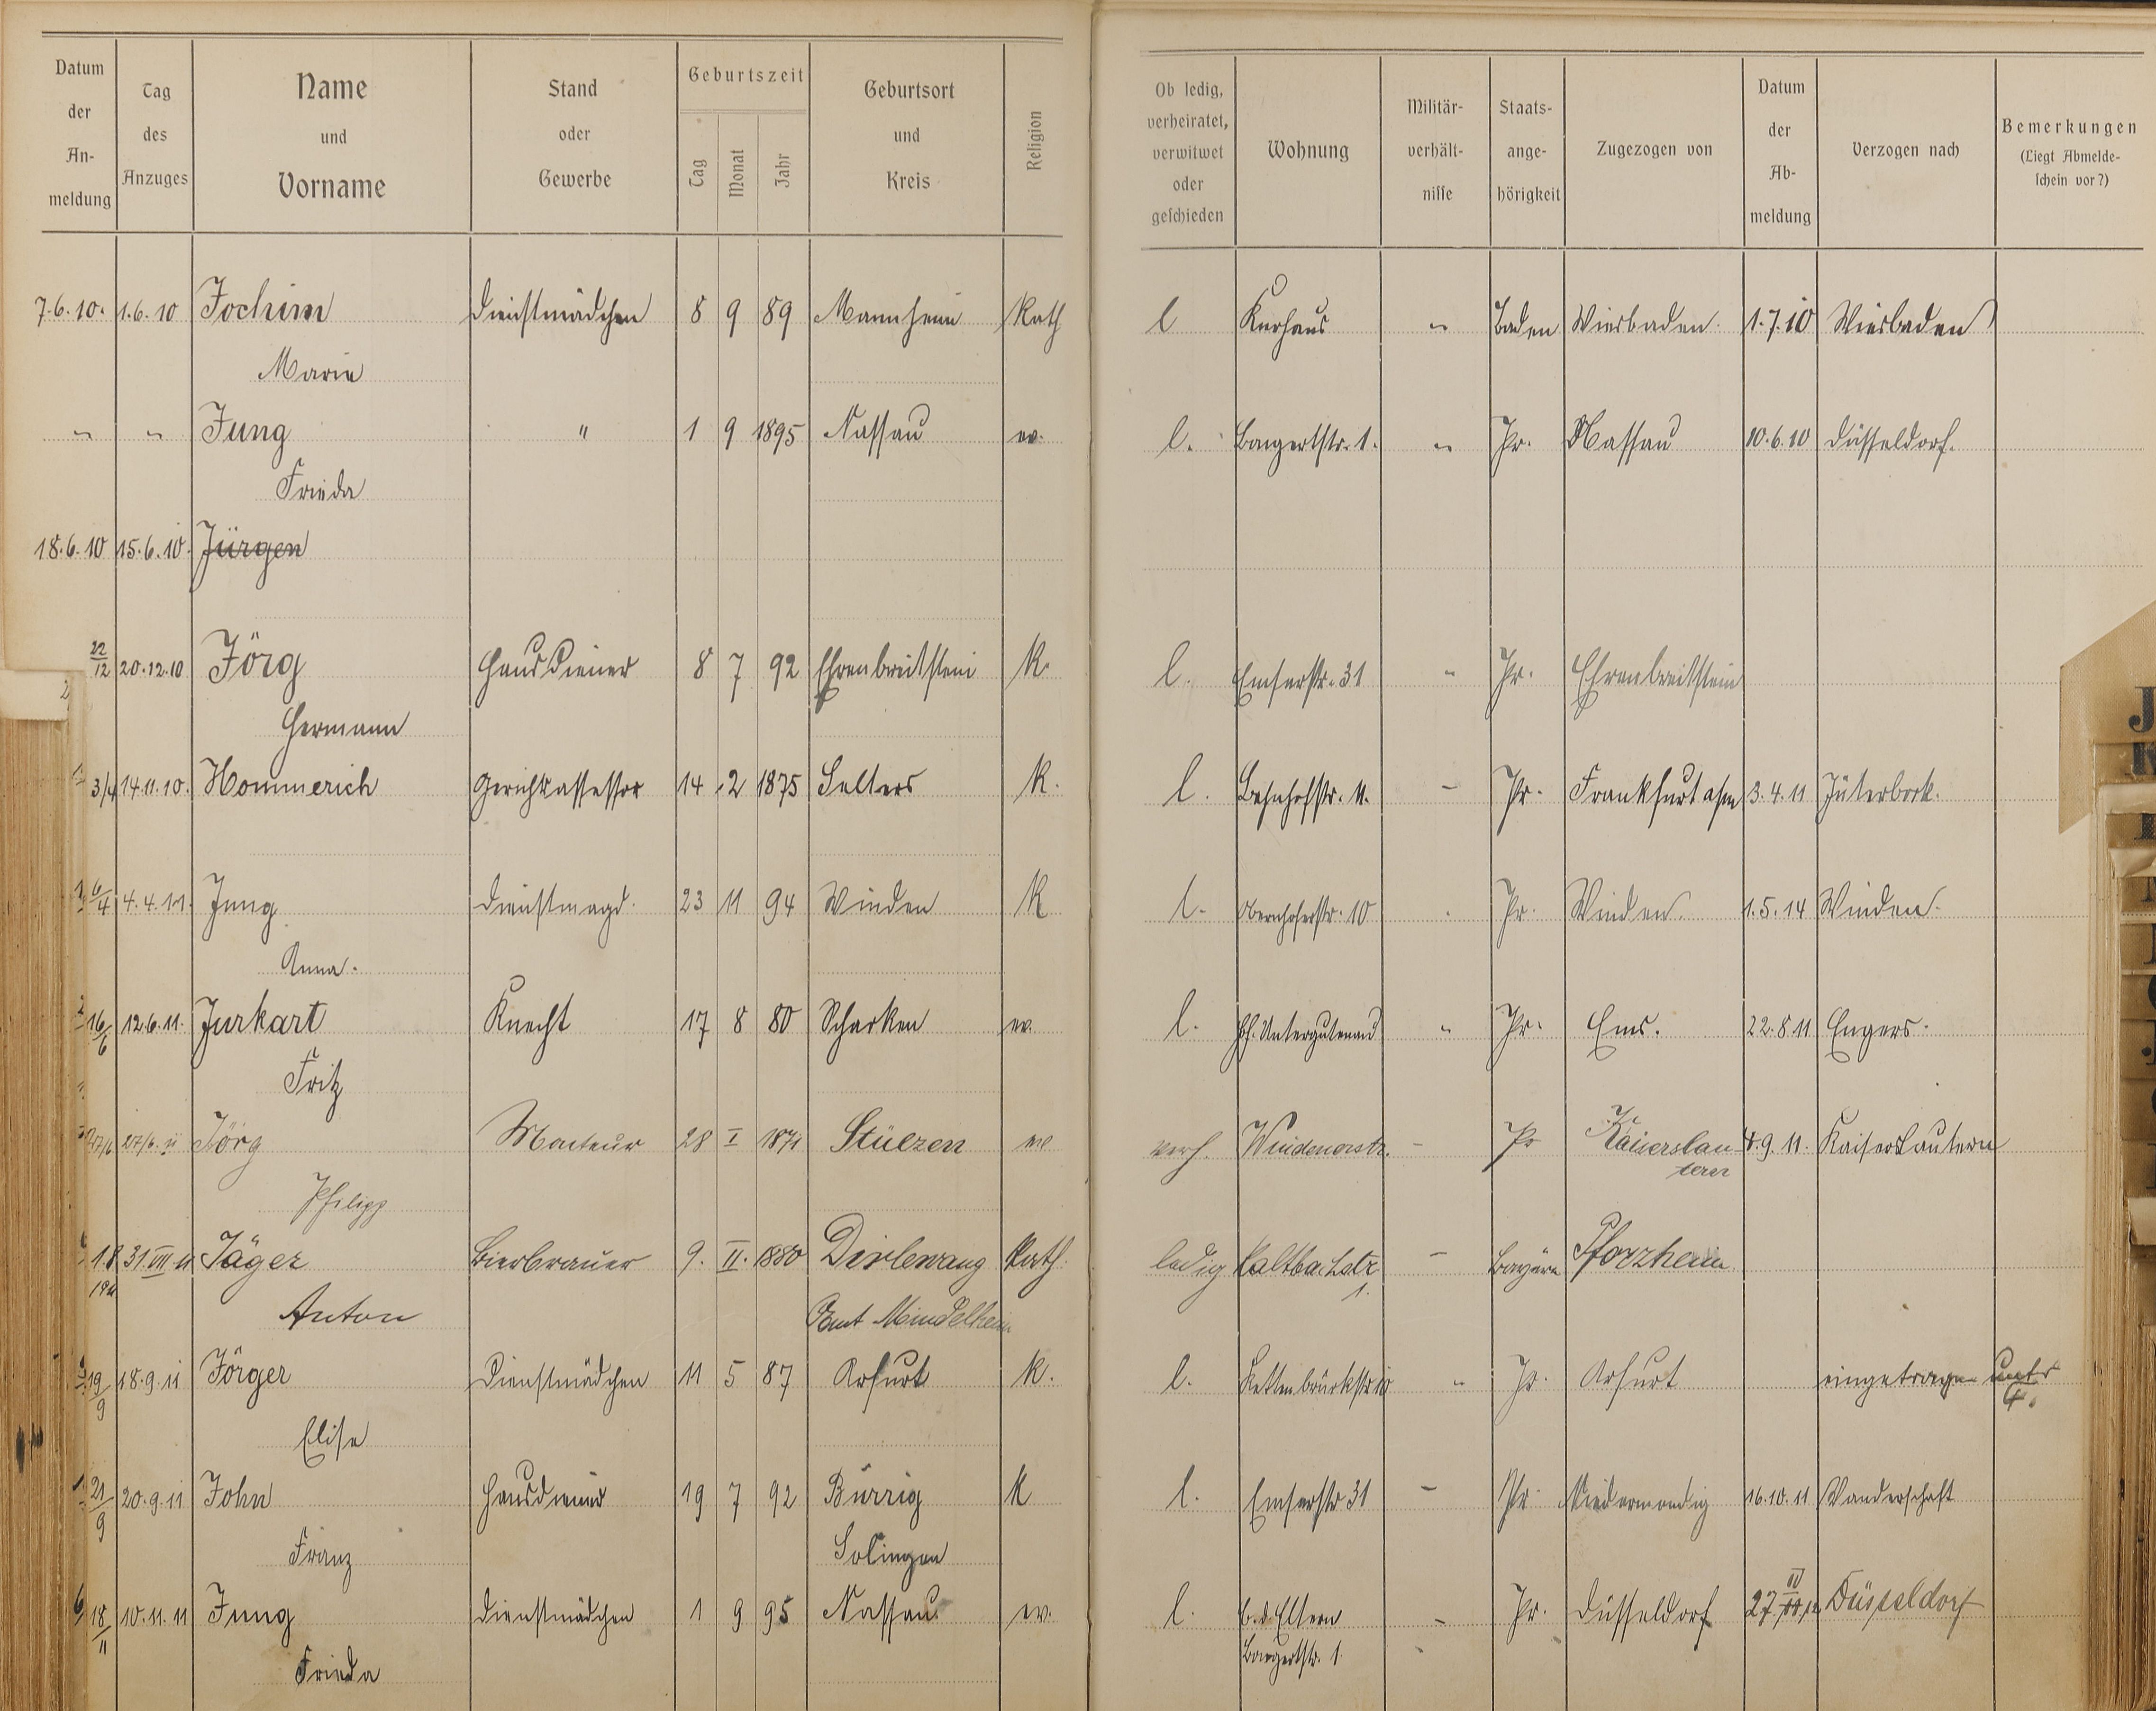 Datum der An-meldung | Tag des Anzuges | Name und Vorname | Stand oder Gewerbe | Geburtszeit Tag Monat Jahr | Geburtsort und Kreis | Religion | Ob ledig, verheiratet, verwitwet oder geschieden | Wohnung | Militär-verhält-nisse | Staats-ange-hörigkeit | Zugezogen von | Datum der Ab-meldung | Verzogen nach | Bemerkungen (Liegt Abmelde-schein vor?)
7.6.10. 1.6.10 Jochim Dienstmädchen 8 9 89 Mannheim Kath l Kurhaus " Baden Wiesbaden. 1.7.10 Wiesbaden
Marie
" " Jung " 1 9 1895 Nassau ev. l. Bongertstr. 1. " Pr. Nassau 10.6.10 Düsseldorf.
Frieda
18.6.10 15.6.10. Jürgen
22/12 20.12.10 Jörg Hausdiener 8 7 92 Ehrenbreitstein K. l. Emserstr. 31 " Pr. Ehrenbreitstein
Hermann
3/4 14.11.10. Hommerich Gerichtsassessor 14 2 1875 Selters K. l. Bahnhofstr. 11. - Pr. Frankfurt a/m 3.4.11 Jüterbock.
6/4 4.4.11. Jung Dienstmagd. 23 11 94 Winden K l. Obernhoferstr. 10 Pr. Winden. 1.5.14 Winden.
Anna.
16/6 12.6.11. Jurkart Knecht 17 8 80 Scharken ev. l. Hf. Untergutenau " Pr. Ems. 22.8.11 Engers.
Fritz
27/6 27/6.11 Jörg Monteur 28 I 1871 Stüezen ev verh. Windenerstr. - Pr Kaiserslau- 4.9.11. Kaiserslautern
tern
Philipp
1.8 31.VII 11 Jäger Bierbrauer 9. II. 1880 Dirlewang Kath. ledig Kaltbachstr - Bayern Pforzheim
1911 1.
Anton Amt Mindelheim
19/9 18.9.11 Jörger Dienstmädchen 11 5 87 Arfurt K. l. Kettenbrückstr 10 " Pr. Arfurt eingetragen unter
G.
Elise
21/9 20.9.11 John Hausdiener 19 7 92 Bürrig K l. Emserstr 31 - Pr. Niedermendig 16.10.11 Wanderschaft
Franz Solingen
18/11 10.11.11 Jung Dienstmädchen 1 9 95 Nassau. ev. l. b. d. Eltern - Pr. Düsseldorf 27. 12 Düsseldorf
Bongertstr. 1
Frieda
J
K